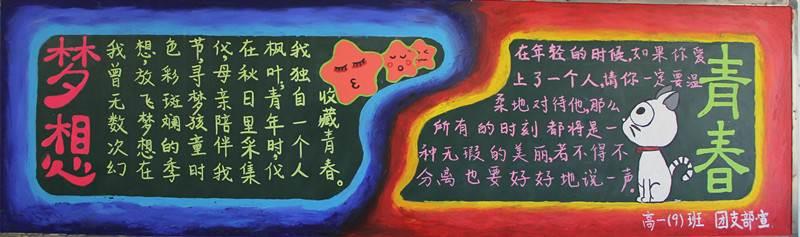 梦想
我曾无数次幻
想，放飞梦想在
色彩斑斓的季
节，寻梦孩童时
代，母亲陪伴我
在秋日里采集
枫叶，青年时，代
我独自一个人
收藏青春。
青春
在年轻的时候，如果你爱
上了一个人，请你一定要温
柔地对待他，那么
所有的时刻都将是一
种无瑕的美丽，若不得不
分离也要好好地说一声
高一(9)班 团支部·宣